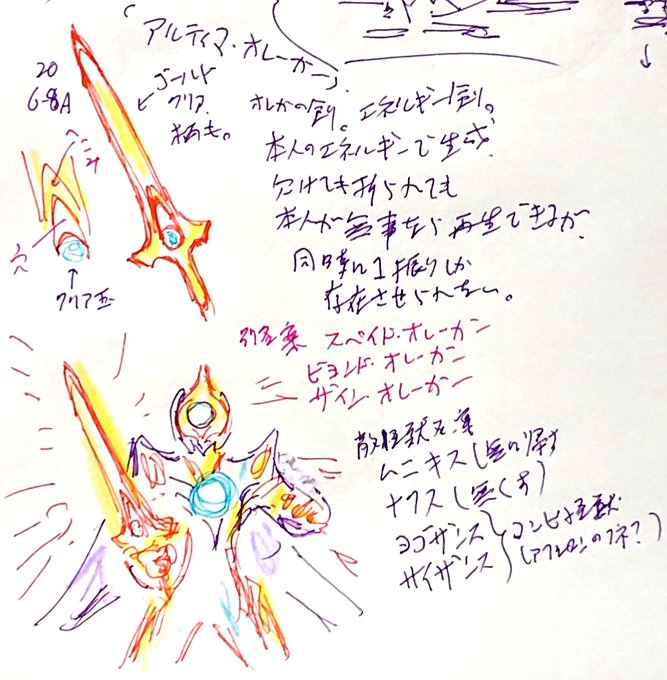 アルティマ・オレーガー
20
6-8A
ゴールド
クリア
柄も。
へこみ
穴
クリア玉
オレカの剣。エネルギー剣。
本人のエネルギーで生成
欠けても折られても
本人が無事なら再生できるが
同時に1振りしか
存在させられない。
別名案 スペイド・オレーガー
ビヨンド・オレーガー
ザイン・オレーガー
敵怪獣名案
ムニキス(無に帰す
ナクス(無くす)
ヨゴザンス
サイザンス
コンビ怪獣